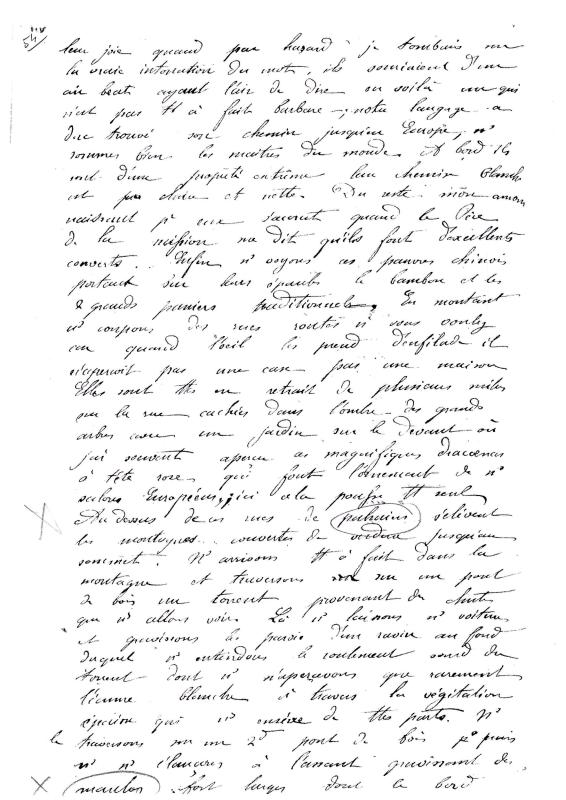 leur joie quand par hazard je tombais sur
la vraie intonation du mot, ils souriaient d'un
air béat ayant l'air de dire en voilà un qui
n'est pas tt à fait barbare —; notre langage a
donc trouvé son chemin jusqu'en Europe, ns
sommes bien les maîtres du monde. A bord ils
sont d'une propreté extrême leur chemise blanche
est claire et nette. Du reste mon amour
naissant pr eux s'accroît quand le Père
de la mission me dit qu'ils font d'excellents
convertis.. Enfin ns voyons ces pauvres chinois
portant sur leurs épaules le bambou et les
2 grands paniers traditionnels. En montant
ns coupons des rues routes si vous voulez
car quand l'œil les prend d'enfilade il
n'aperçoit pas une case pas une maison
Elles sont ttes en retrait de plusieurs mètres
sur la rue cachées dans l'ombre des grands
arbres avec un jardin sur le devant où
j'ai souvent aperçu ces magnifiques dracenas
à tête rose qui font l'ornement de ns
salons Européens, ici cela pousse tt seul
Au dessus de ces rues de s'élèvent
les montagnes couvertes de verdure jusqu'au
sommet. Ns arrivons tt à fait dans la
montagne et traversons sur un pont
de bois un torrent provenant de chutes
que ns allons voir. Là ns laissons ns voitures
et gravissons les parois d'un ravin au fond
duquel ns entendons le roulement sourd du
torrent dont ns n'apercevons que rarement
l'écume blanche à travers la végétation
épaisse qui ns enserre de ttes parts. Ns
le traversons sur un 2d pont de bois puis
ns ns élançons à l'assaut gravissant des
marches fort larges dont le bord